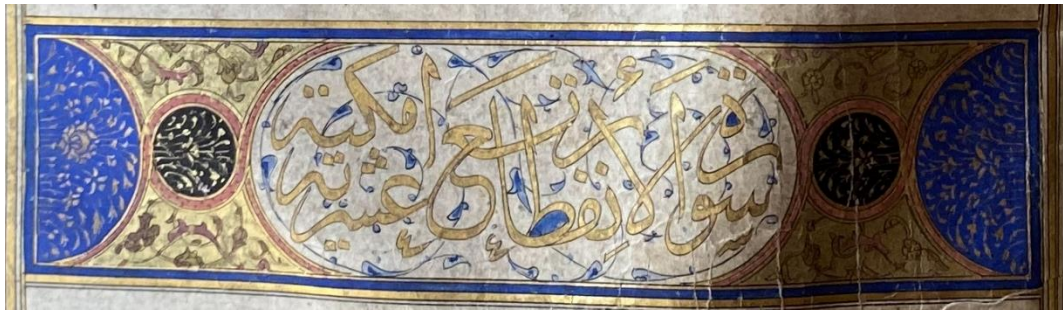 سورة الانفطار تسع عشر اية مكية